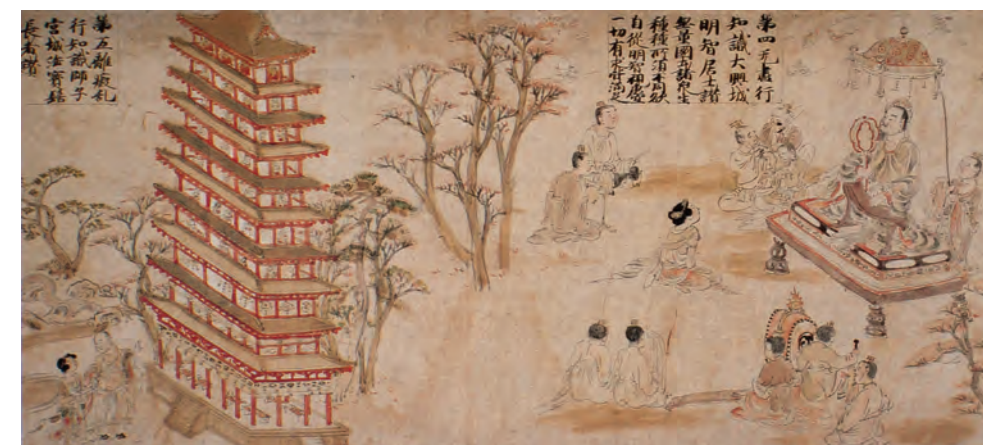 第四无盡行
知識大興城
明智居士讃
無量國土諸衆生
種種所須不同狀
自從明智
一切有求皆滿足
第五離癡乱
行知識師子
宮城法寶髻
長者讃